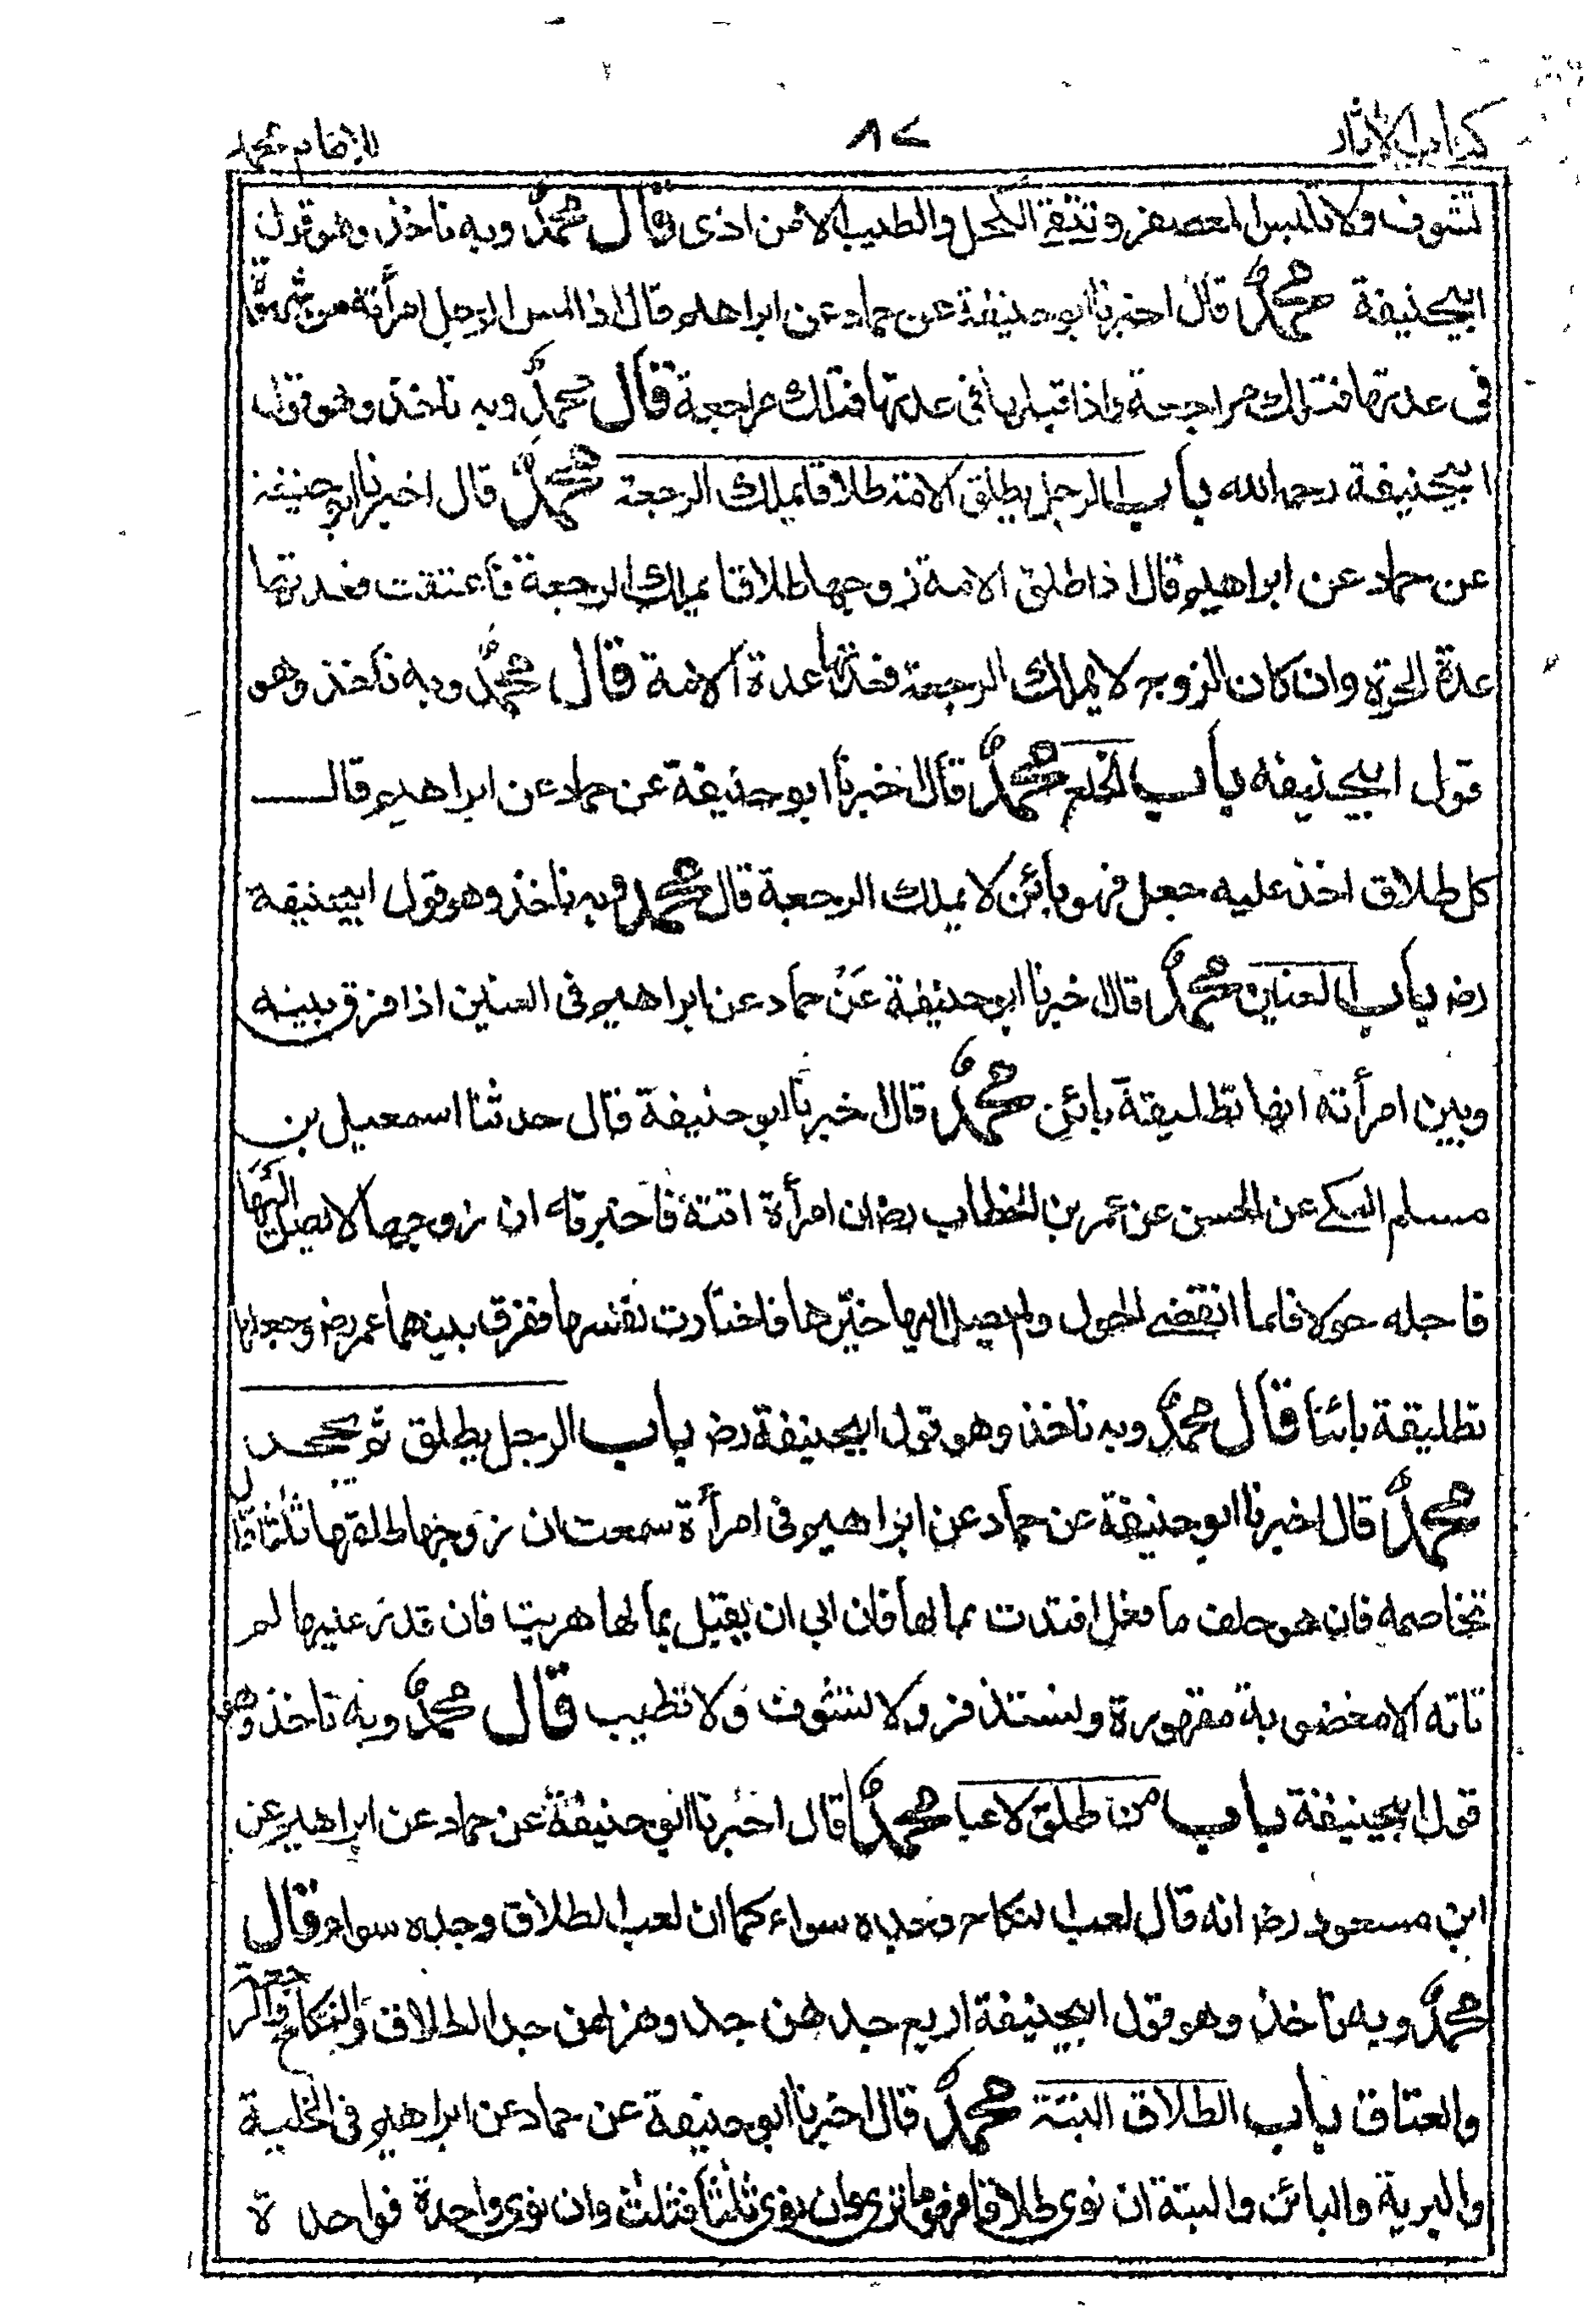 كتاب الاثار ٨٧ للامام محمد
تشوف ولا تلبس المعصفر وتتقى الكحل والطيب الا من اذى قال محمد وبه ناخذ وهو قول
ابيحنيفة محمد قال اخبرنا ابو حنيفة عن حماد عن ابراهيم قال اذا لمس الرجل امرأته من شهوة
فى عدتها فتلك مراجعة واذا قبلها فى عدتها فتلك مراجعة قال محمد وبه ناخذ وهو قول
ابيحنيفة رحمه الله باب الرجل يطلق الامة طلاقا يملك الرجعة محمد قال اخبرنا ابو حنيفة
عن حماد عن ابراهيم قال اذا طلق الامة زوجها طلاقا يملك الرجعة فاعتقت فعدتها
عدة الحرة وان كان الزوج لا يملك الرجعة فعدتها عدة الامة قال محمد وبه ناخذ وهو
قول ابيحنيفه باب الخلع محمد قال اخبرنا ابو حنيفة عن حماد عن ابراهيم قال
كل طلاق اخذ عليه جعل فهو بائن لا يملك الرجعة قال محمد وبه ناخذ وهو قول ابيحنيفة
رضـ باب العنين محمد قال اخبرنا ابو حنيفة عن حماد عن ابراهيم فى العنين اذا فرق بينه
وبين امرأته انها تطليقة بائن محمد قال اخبرنا ابو حنيفة قال حدثنا اسمعيل بن
مسلم المكى عن الحسن عن عمر بن الخطاب رضـ ان امرأة اتته فاخبرته ان زوجها لا يصل اليها
فاجله حولا فلما انقضى الحول ولم يصل اليها خيرها فاختارت نفسها ففرق بينهما عمر رضـ وجعلها
تطليقة بائنا قال محمد وبه ناخذ وهو قول ابيحنيفة رضـ باب الرجل يطلق ثم يجحد
محمد قال اخبرنا ابو حنيفة عن حماد عن ابراهيم فى امرأة سمعت ان زوجها طلقها ثلثا قال
تخاصمه فان هو حلف ما فعل افتدت بمالها فان ابى ان يقبل بمالها هربت فان قدر عليها لم
تاته الا مغضوبة مقهورة وتستذفر ولا تشوف ولا تطيب قال محمد وبه ناخذ وهو
قول ابيحنيفة باب من طلق لاعبا محمد قال اخبرنا ابو حنيفة عن حماد عن ابراهيم عن
ابن مسعود رضـ انه قال لعب النكاح وجده سواء كما ان لعب الطلاق وجده سواء قال
محمد وبه ناخذ وهو قول ابيحنيفة اربع جدهن جد وهزلهن جد الطلاق والنكاح والرجعة
والعتاق باب الطلاق البتة محمد قال اخبرنا ابو حنيفة عن حماد عن ابراهيم فى الخلية
والبرية والبائن والبتة ان نوى طلاقا فهو ما نوى وان نوى ثلثا فثلث وان نوى واحدة فواحدة